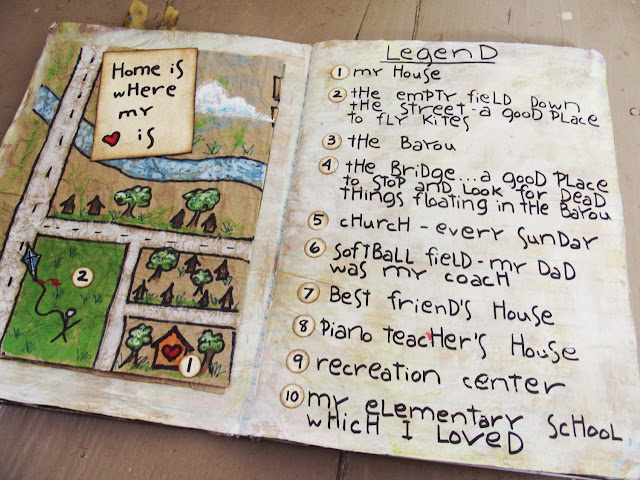 Home is
where
my
is
2
1
Legend
1 my House
2 the empty field down
the street - a good place
to fly kites
3 the Bayou
4 the Bridge... a good place
to stop and look for dead
things floating in the Bayou
5 church - every sunday
6 softball field - my dad
was my coach
7 Best friend's House
8 piano teacher's House
9 recreation center
10 my elementary school
which I loved